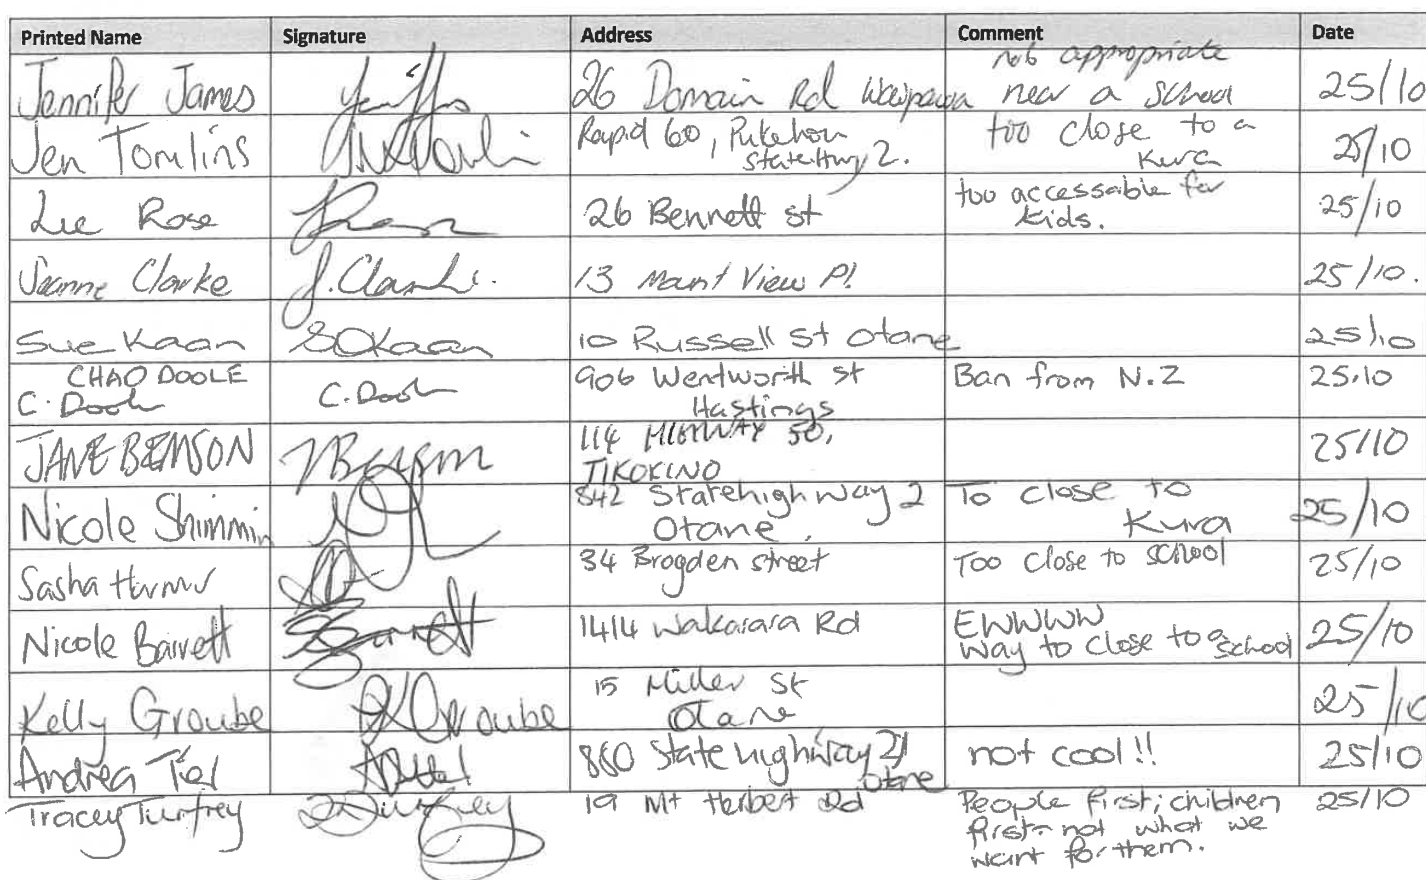 Printed Name Signature Address Comment Date
Jennifer James 26 Domain Rd Waipawa not appropriate near a school 25/10
Jen Tomlins Rapid 60, Pukehou State Hwy 2. too close to a Kura 25/10
Lee Rose 26 Bennett st too accessable for kids. 25/10
Jeanne Clarke J. Clarke. 13 Mount View Pl 25/10.
Sue Kaan SOKaan 10 Russell St Otane 25/10
CHAD DOOLE
C. Doole C. Doole 906 Wentworth St Hastings Ban from N.Z 25.10
JANE BEMSON 114 HIGHWAY 50, TIKOKINO 25/10
Nicole Shimmin 842 Statehighway 2 Otane. To close to Kura 25/10
Sasha 34 Brogden street Too close to school 25/10
Nicole Barrett 1414 Wakarara Rd EWWWW way to close to a school 25/10
Kelly Groube KGroube 15 Miller St Otane 25/10
Andrea Tiel 880 State highway 2 Otane not cool!! 25/10
Tracey Turfrey 19 Mt Herbert Rd People first; children first - not what we want for them. 25/10